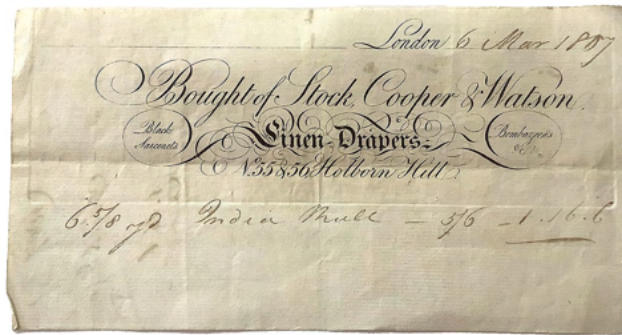 London 6 Mar 1807
Bought of Stock, Cooper & Watson.
Black Sarcenets
Linen-Drapers
Bombazeens &c.
No. 55 & 56 Holborn Hill
6 5/8 yd India Mull — 5/6 — 1.16.6